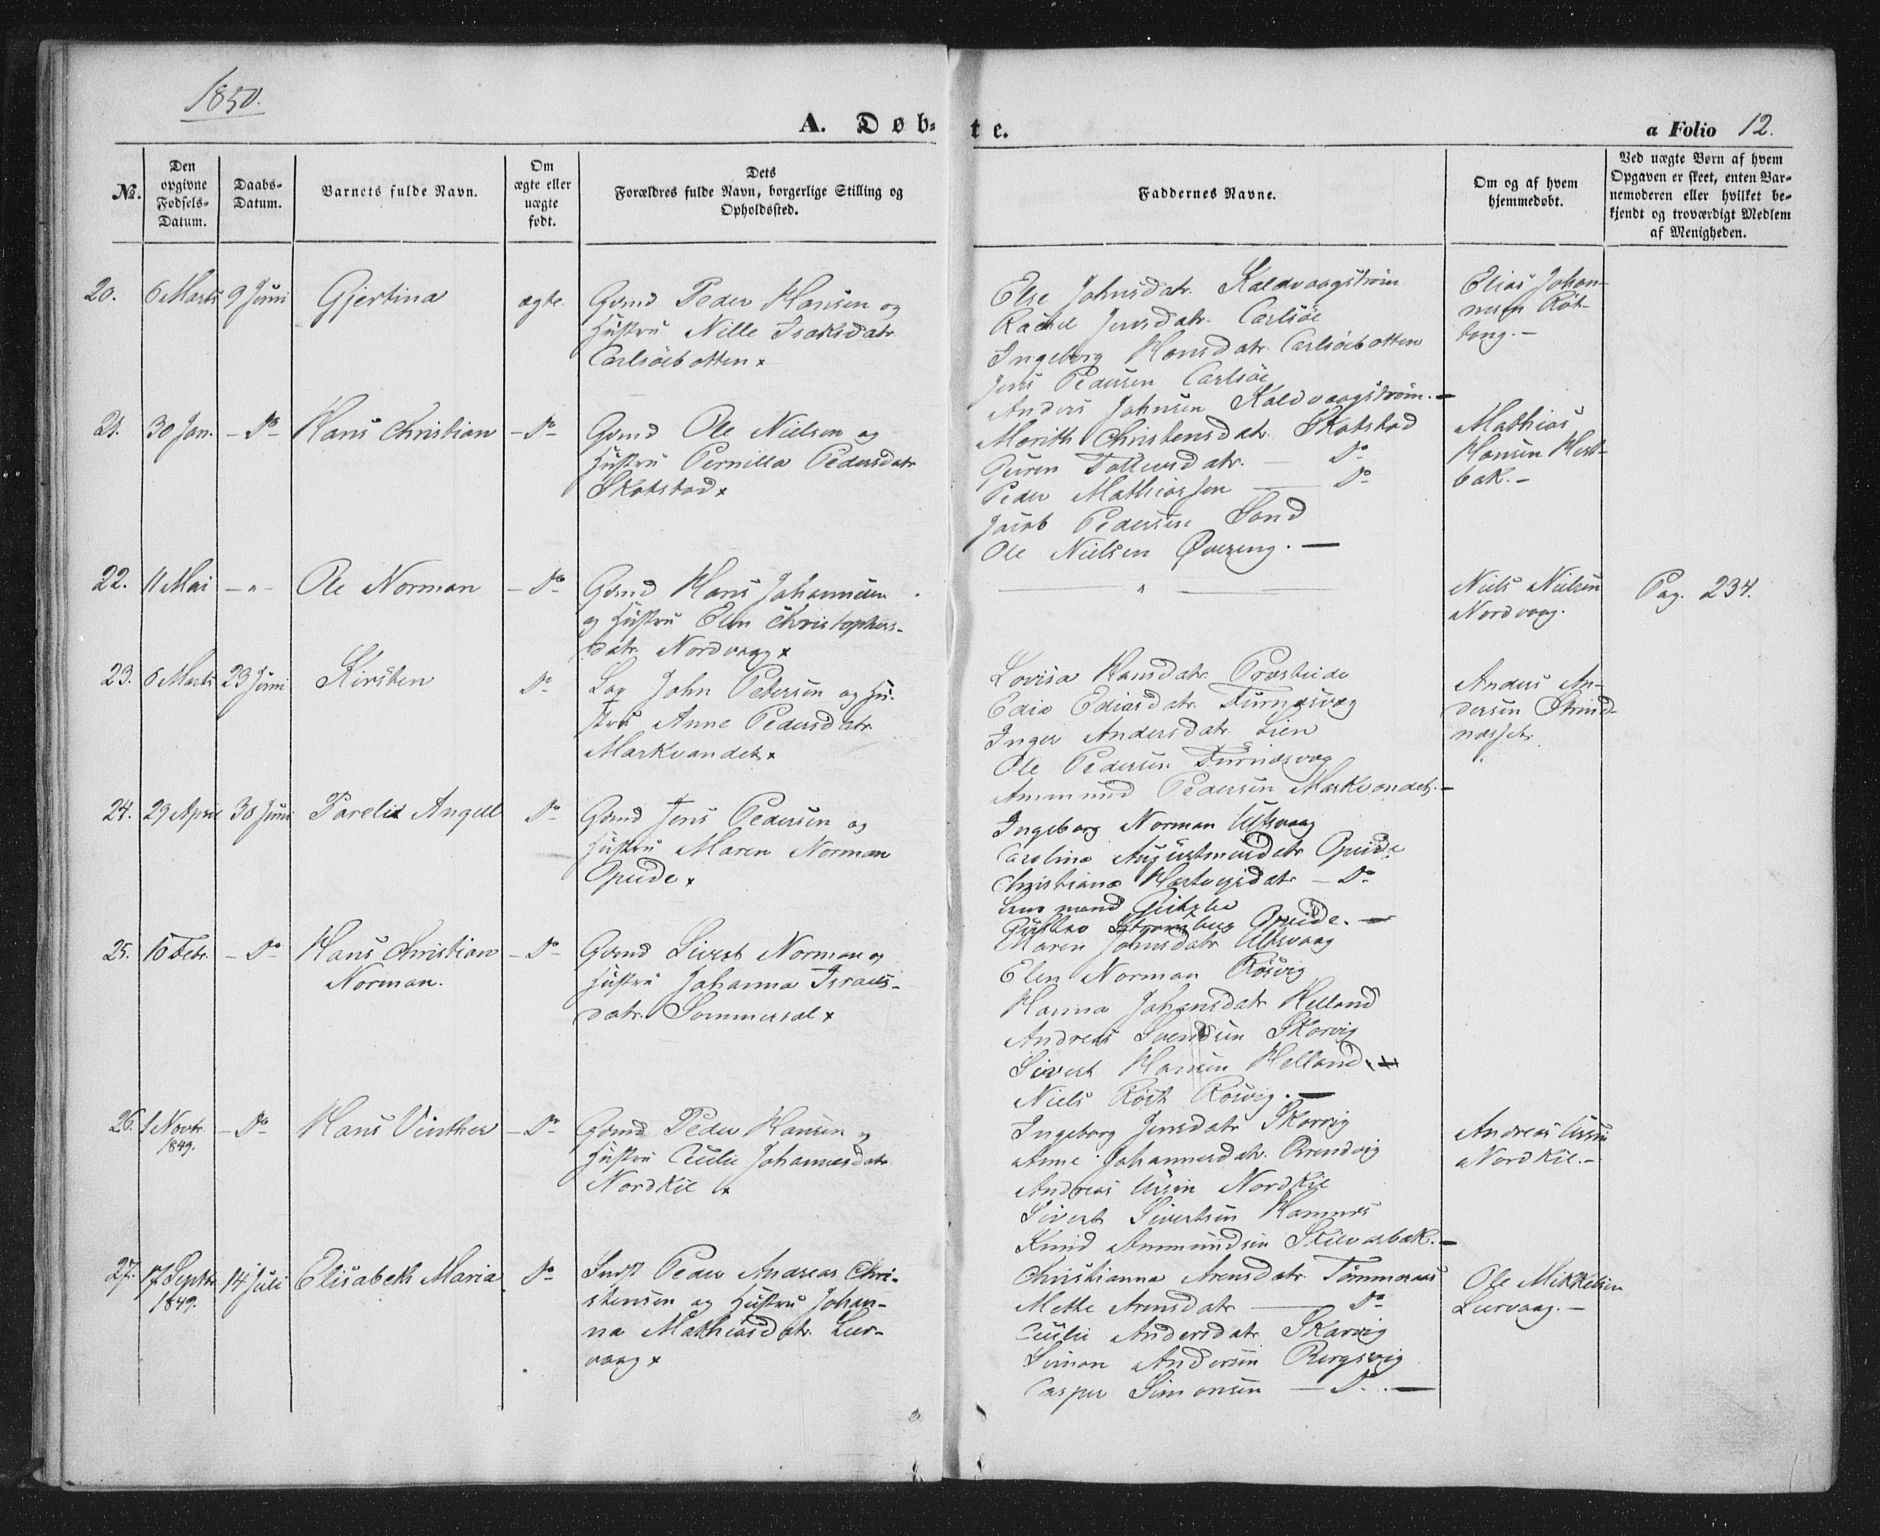 1850.
A. Døb-
te.
a Folio 12.
No.
Den opgivne Fødsels-Datum.
Daabs-Datum.
Barnets fulde Navn.
Om ægte eller uægte født.
Dets Forældres fulde Navn, borgerlige Stilling og Opholdssted.
Faddernes Navne.
Om og af hvem hjemmedøbt.
Ved uægte Børn af hvem Opgaven er skeet, enten Barnemoderen eller hvilket bekjendt og troværdigt Medlem af Menigheden.
20. 6 Marts 9 Juni Gjertina ægte.
Gmd Peder Hansen og
Hustru Nille Isaksdatr
Carlsöebotten
Else Johnsdatr. Kaldvaagstrøm
Rachel Jensdatr. Carlsöe
Ingeborg Hansdatr. Carlsöebotten
Jens Pedersen Carlsöe
Anders Johnsen Kaldvaagstrøm. —
Elias Johan-
nesen Röt-
tang. —
21. 30 Jan. — Do Hans Christian — Do —
Gmd Ole Nielsen og
Hustru Pernilla Pedersdatr
Skotstad
Marith Christensdatr. Skotstad
Guren Tollevsdatr. — Do
Peder Mathiassen — Do
Jacob Pedersen Sand
Ole Nielsen Øvereng. —
Mathias
Hansen Hest-
bak. —
22. 11 Mai — " — Ole Norman — Do —
Gmd Hans Johannesen
og Hustru Elen Christophers-
datr. Nordvaag
— " —
Niels Nielsen
Nordvaag.
Pag. 234.
23. 6 Marts 23 Juni Kirsten Do
John Pedersen og Hu-
stru Anne Pedersdatr
Markvandet
Lovisa Hansdatr. Præsteide
Edis Ediasdatr. Furnæsvæg
Inger Andersdatr. Lien
Ole Pedersen Furnæsvæg
Ammund Pedersen Markvandet. —
Anders An-
dersen Strind-
næsset.
24. 29 April 30 Juni Parelia Angell Do
Gmd Jens Pedersen og
Hustru Maren Norman
Opeide
Ingeborg Norman Ulfsvaag
Carolina Augustinusdatr Opeide
Christiana Hartvigsdatr — Do
Gustav Strømberg Opeide. —
25. 16 Febr. — Do Hans Christian — Do —
Norman.
Gmd Sivert Norman og
Hustru Johanna Israels-
datr. Sommersel
Maren Johnsdatr Ulfsvaag
Elen Norman Rösvig
Hanna Johansdatr Helland
Andreas Svendsen Skarvig
Sivert Hansen Helland. —
Niels Röst Rösvig. —
26. 1 Novbr. 1849. — Do Hans Vinther — Do —
Gmd Peder Hansen og
Hustru Cecilie Johannesdatr.
Nordkil
Ingeborg Jensdatr Skarvig
Anne Johannesdatr. Brendvig
Andreas Ursin Nordkil
Sivert Sivertsen Hamnes
Knud Ammundsen Skilvasbak. —
Andreas Ursin
Nordkil. —
27. 17 Septbr 1849. 14 Juli Elisabeth Maria Do
Indst Peder Andreas Chri-
stensen og Hustru Johan-
na Mathiasdatr. Leer-
vaag
Christianna Arensdatr. Tømmeraas
Mette Arensdatr — Do
Cecilie Andersdatr. Skarvig
Simon Andersen Bergsvig
Casper Simonsen — Do. —
Ole Mikkelsen
Leervaag. —